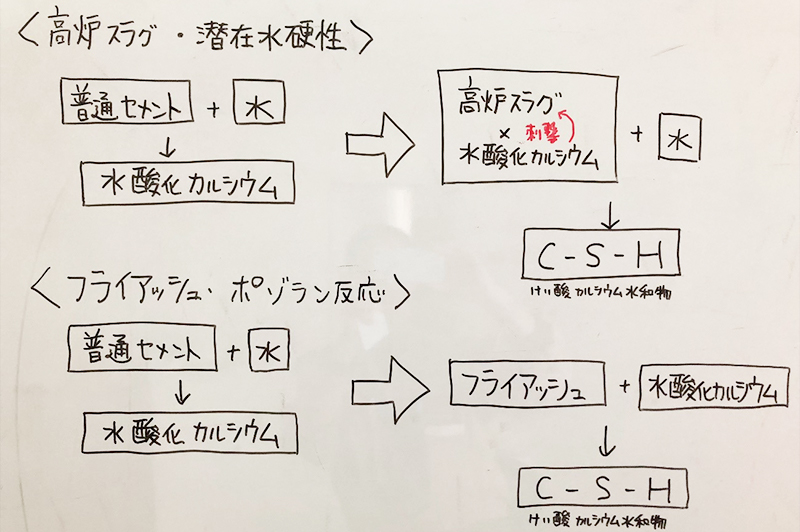 〈高炉スラグ・潜在水硬性〉
普通セメント + 水
↓
水酸化カルシウム
⇒
高炉スラグ
× 刺撃
水酸化カルシウム
+ 水
↓
C-S-H
けい酸カルシウム水和物
〈フライアッシュ・ポゾラン反応〉
普通セメント + 水
↓
水酸化カルシウム
⇒
フライアッシュ + 水酸化カルシウム
↓
C-S-H
けい酸カルシウム水和物